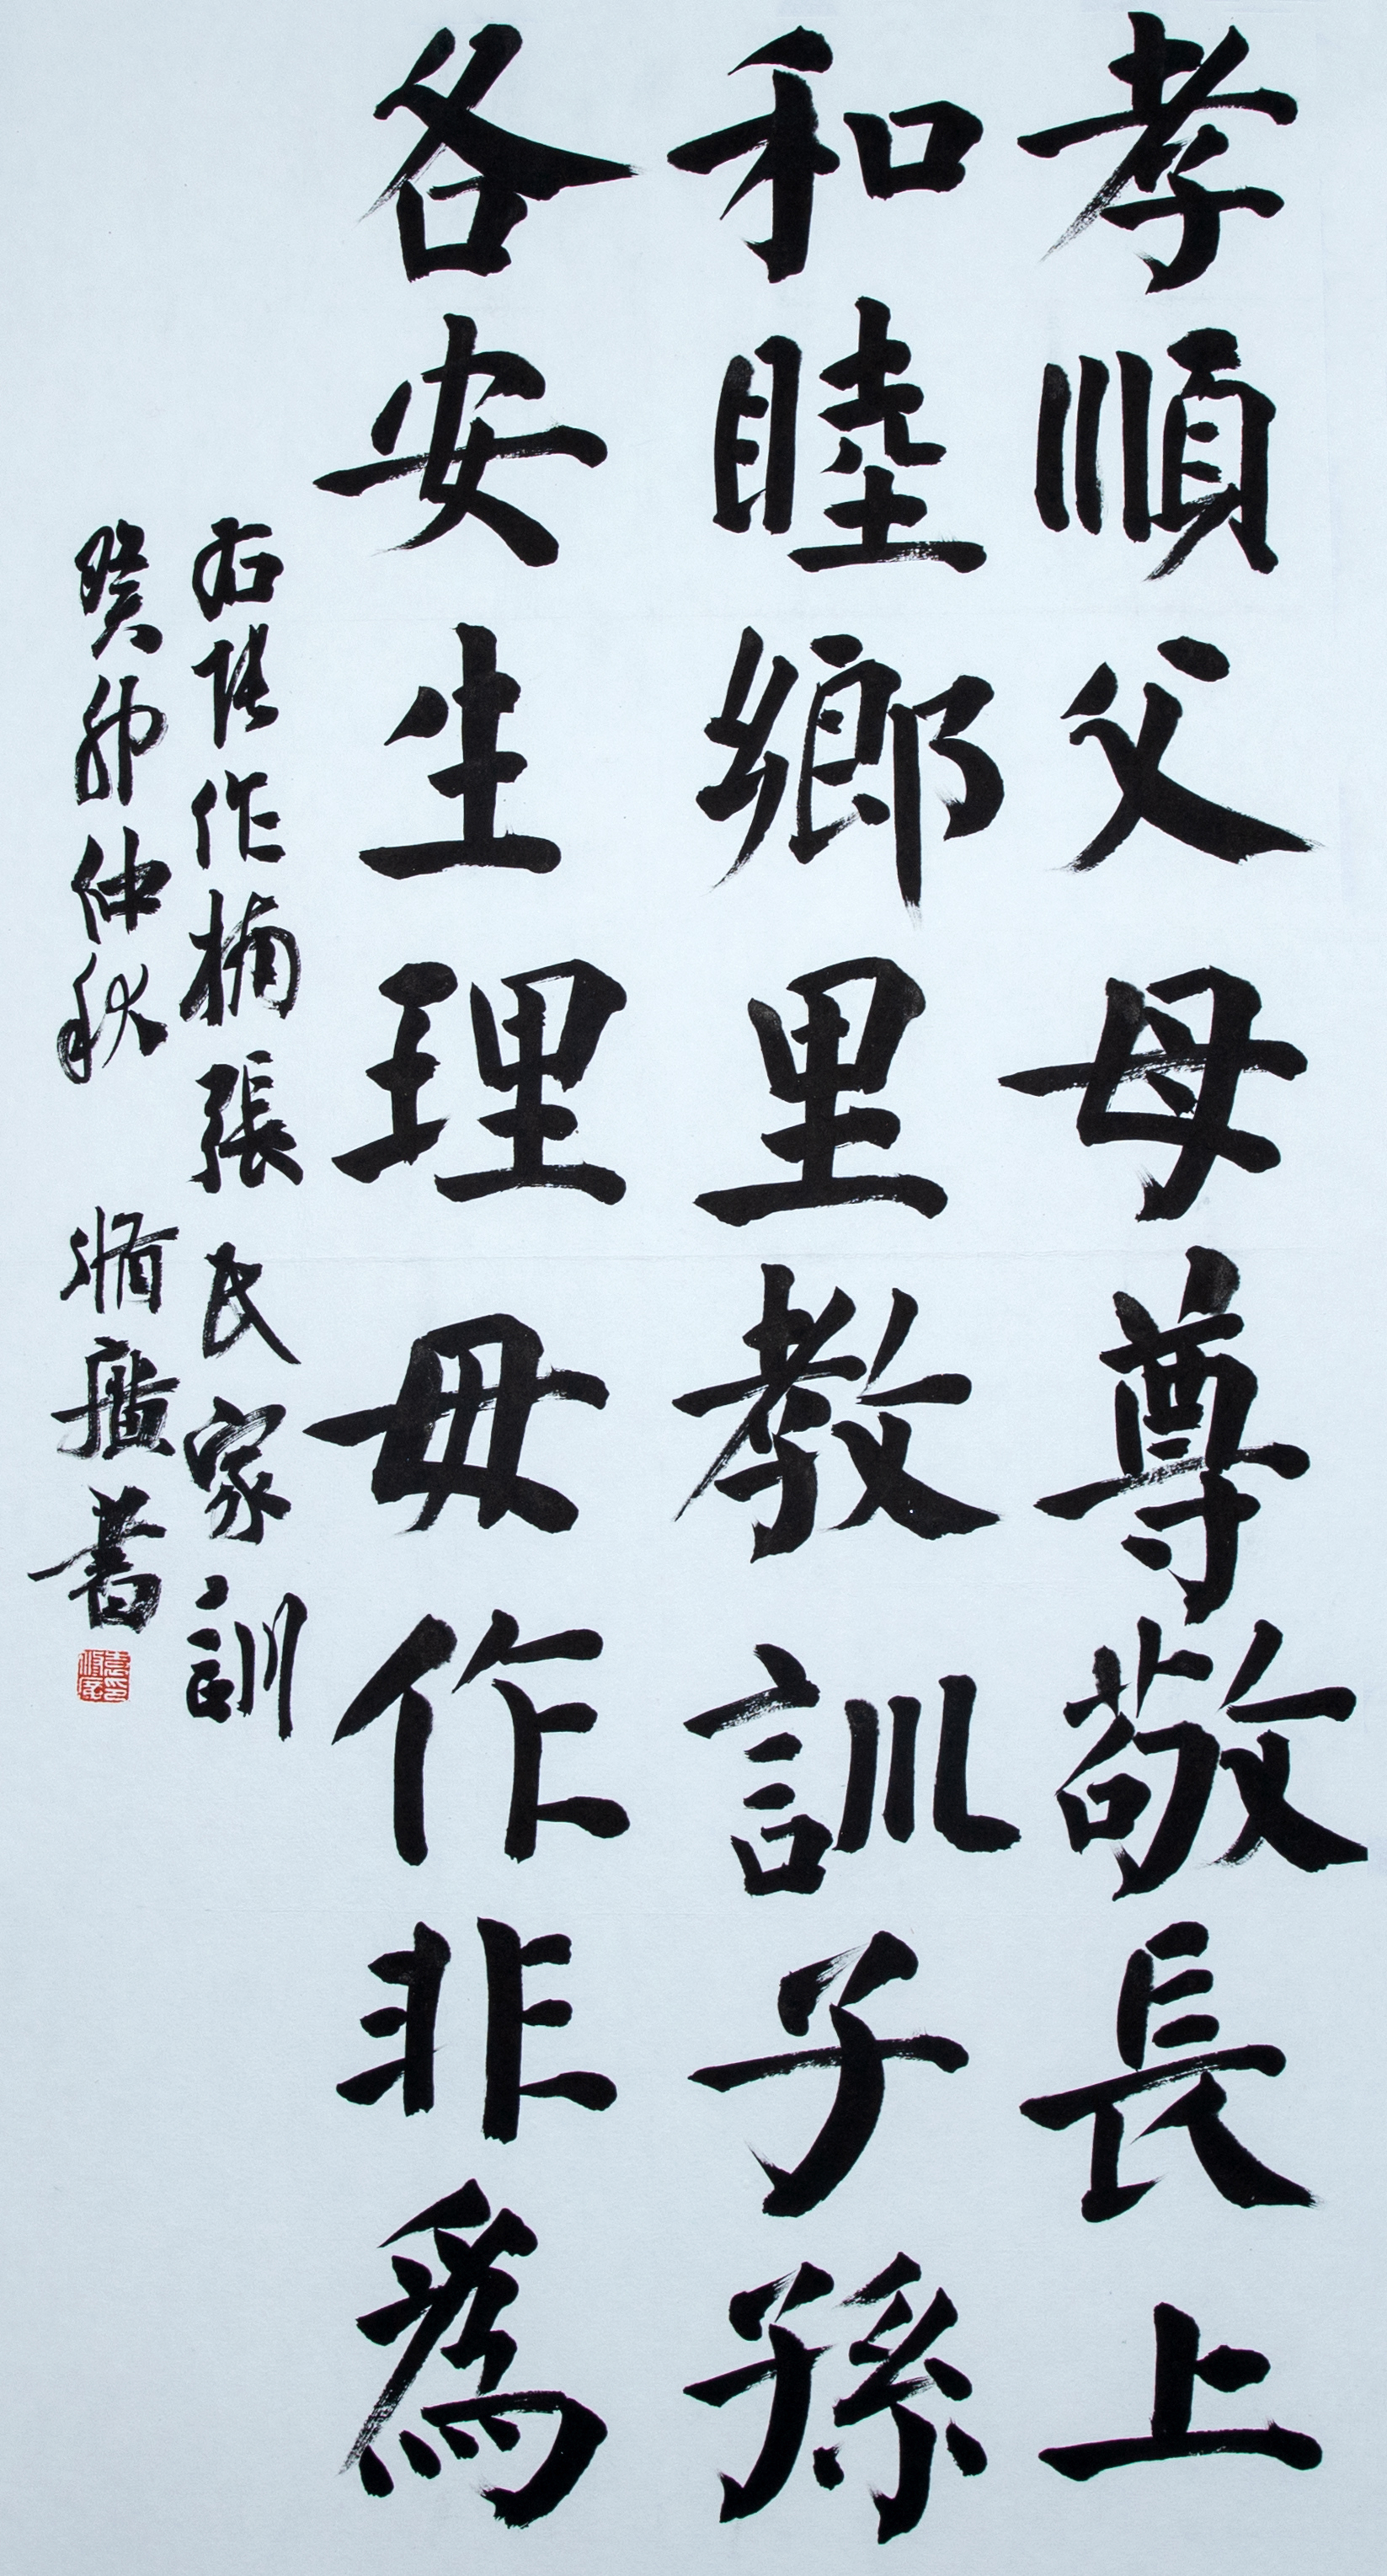 孝順父母尊敬長上
和睦鄉里教訓子孫
各安生理毋作非爲
右張作楠張氏家訓
癸卯仲秋 脩廣書